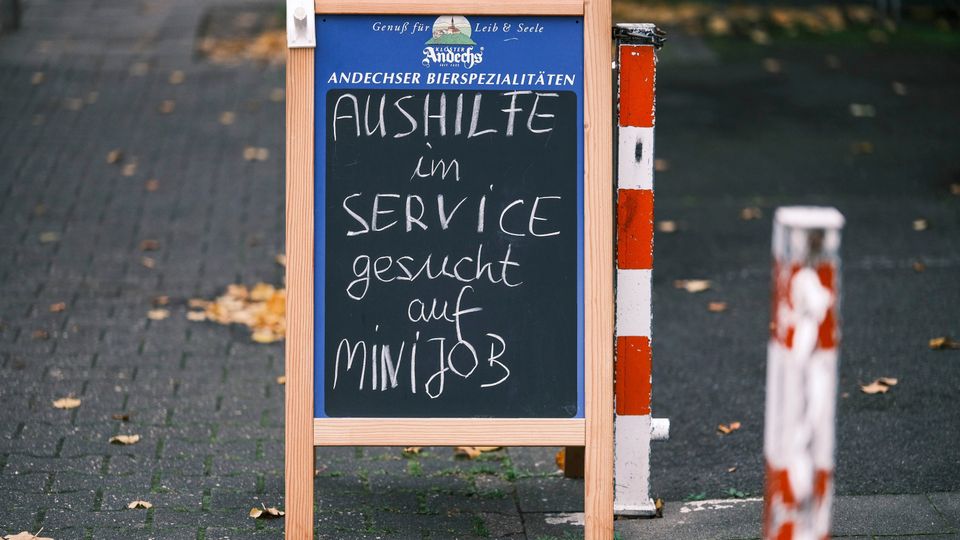 Genuß für Leib & Seele
KLOSTER
Andechs
ANDECHSER BIERSPEZIALITÄTEN
AUSHILFE
im
SERVICE
gesucht
auf
MINIJOB